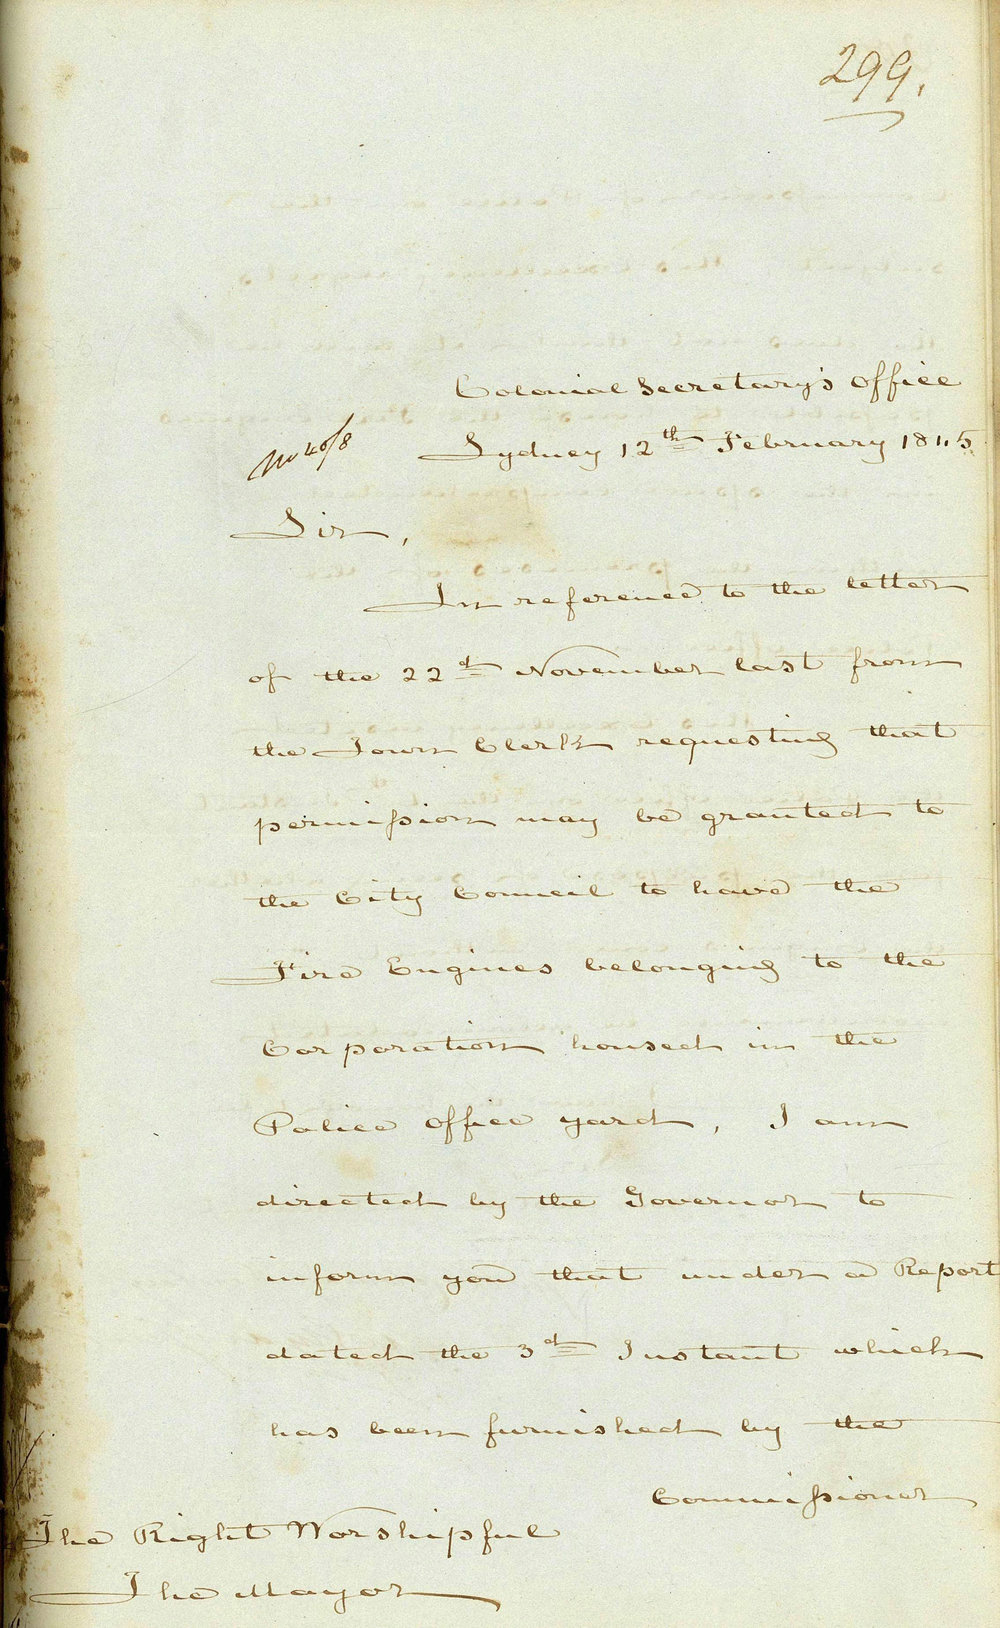 299.
Colonial Secretary's Office
Sydney 12th February 1845
No 45/8
Sir,
In reference to the letter
of the 22d November last from
the Town Clerk requesting that
permission may be granted to
the City Council to have the
Fire Engines belonging to the
Corporation housed in the
Police Office yard, I am
directed by the Governor to
inform you that under a Report
dated the 3d Instant which
has been furnished by the
Commissioner
The Right Worshipful
The Mayor